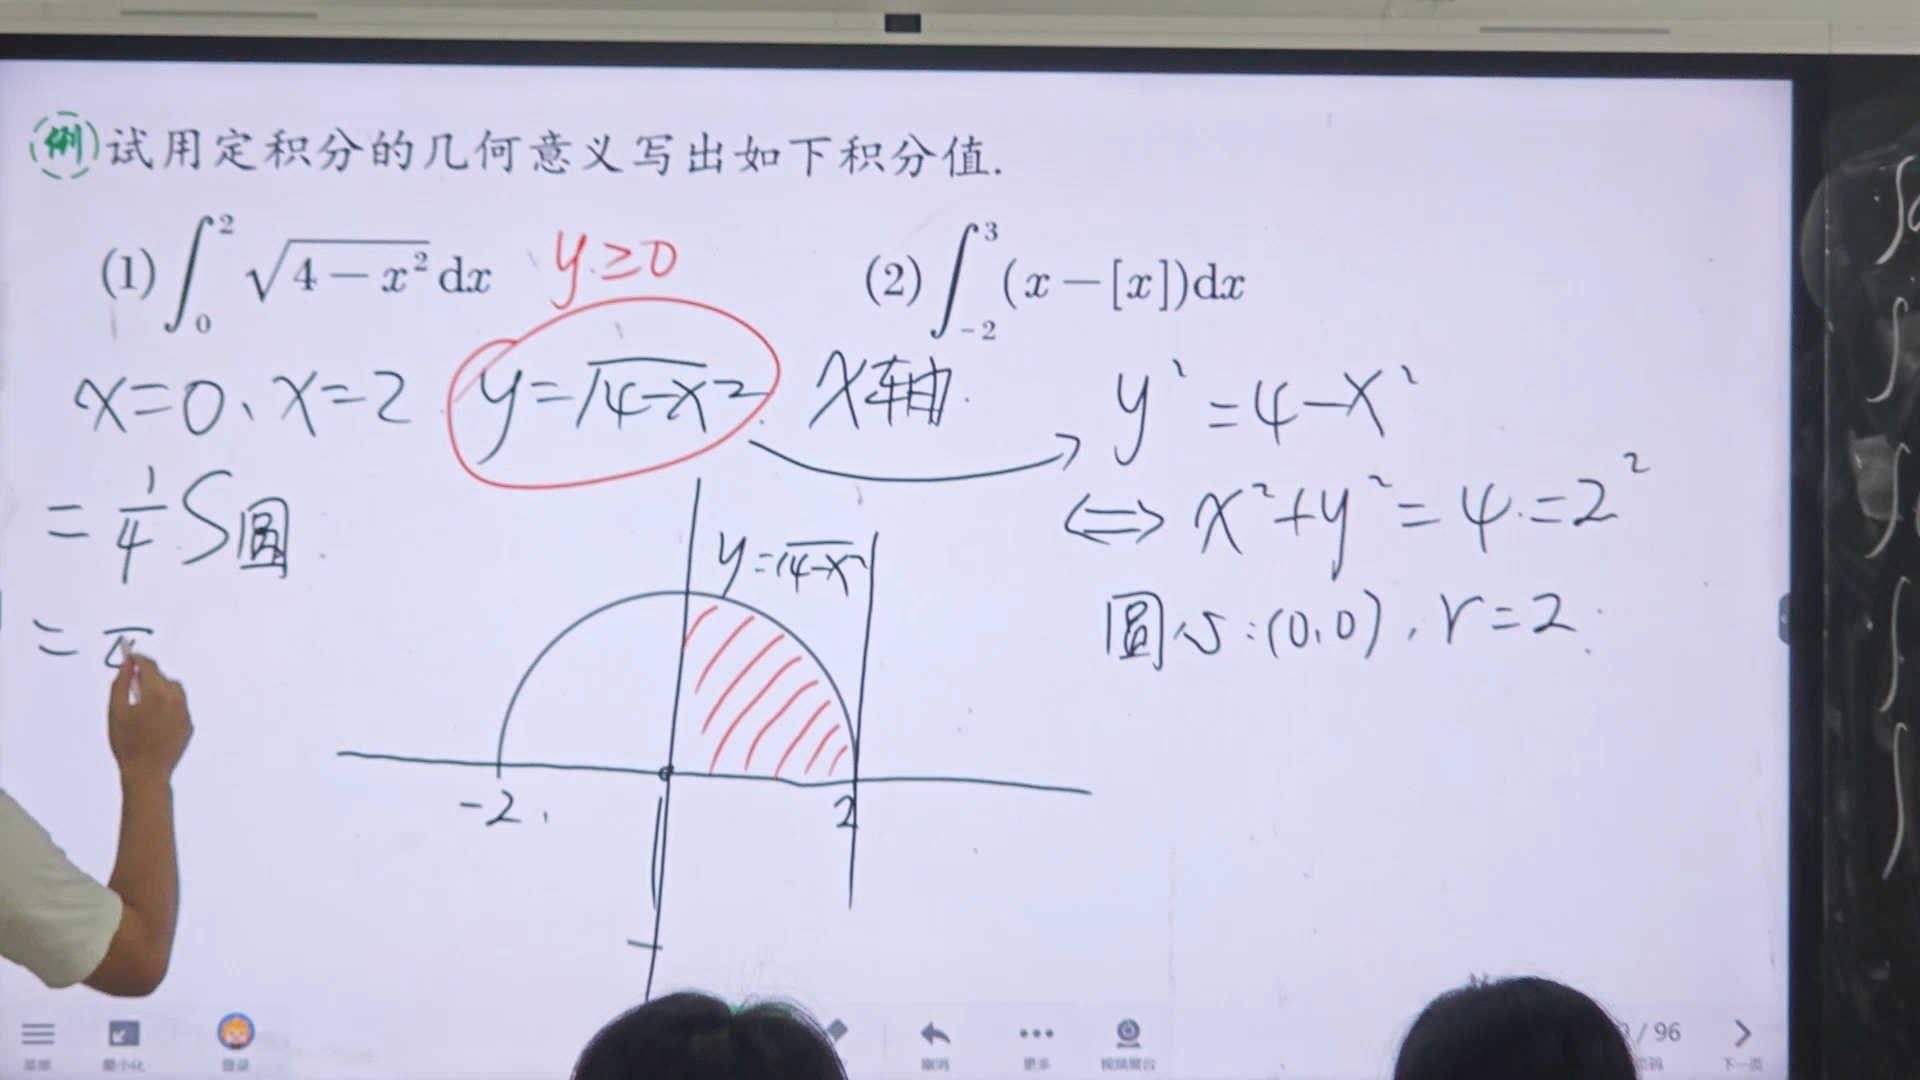 例 试用定积分的几何意义写出如下积分值.
(1) ∫₀² √(4−x²) dx
y≥0
(2) ∫₋₂³ (x−[x])dx
x=0、x=2 y=√4-x² x轴.
y²=4-x²
=1/4 S圆
⟺ x²+y²=4=2²
y=√4-x²
圆心:(0,0), r=2.
=π
-2 2
菜单 最小化 登录 撤消 更多 视频展台 / 96 下一页